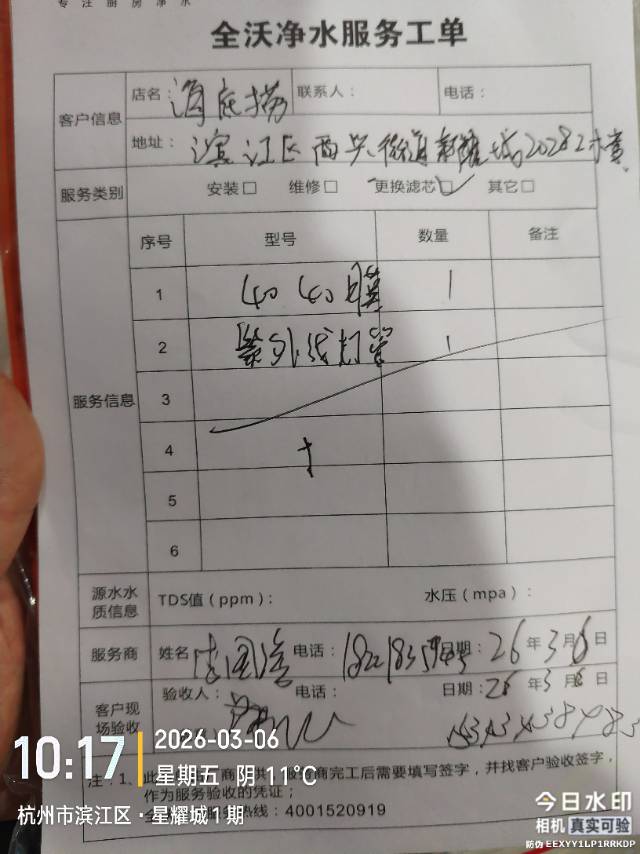 专注厨房净水
全沃净水服务工单
客户信息
店名：海底捞 联系人： 电话：
地址：滨江区西兴街道星耀城2028 2
服务类别 安装□ 维修□ 更换滤芯□ 其它□
服务信息
序号 型号 数量 备注
1 4040膜 1
2 紫外线灯管 1
3
4
5
6
源水水质信息 TDS值（ppm）： 水压（mpa）：
服务商 姓名 电话： 日期：26年3月6日
客户现场验收 验收人： 电话： 日期：26年3月6日
注：1、此 商 供 服务商完工后需要填写签字，并找客户验收签字，
作为服务验收的凭证；
热线：4001520919
10:17
2026-03-06
星期五 阴 11℃
杭州市滨江区·星耀城1期
今日水印
相机 真实可验
防伪 EEXYY1LP1RRKDP